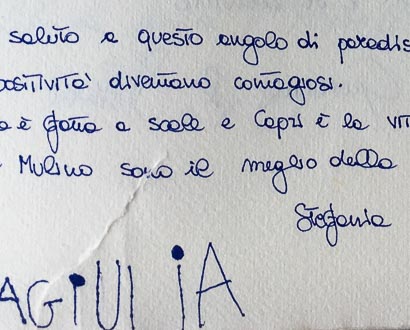 saluto a questo angolo di paradis
positività diventano contagiosi.
a è fatta a scale e Capri è la vit
Mulino sono il meglio della
Stefania
AGIULIA